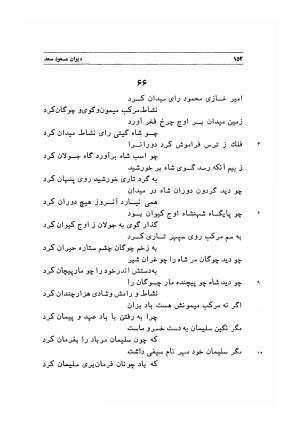 ۱۵۲ دیوان مسعود سعد
۶۶
امیر غازی محمود رای میدان کرد
نشاط مرکب میمون و گوی و چوگان کرد
زمین میدان بر اوج چرخ فخر آورد
چو شاه گیتی رای نشاط میدان کرد
۳ فلک ز ترس فراموش کرد دوران را
چو اسب شاه برآورد گاه جولان کرد
ز بیم آنکه رسد گوی شاه بر خورشید
به گرد تاری خورشید روی پنهان کرد
چو دید گردون دوران شاه در میدان
همی نیارد آنروز هیچ دوران کرد
۶ چو پایگاه شهنشاه اوج کیوان بود
گذار گوی به جولان ز اوج کیوان کرد
به سم مرکب روی سپهر تاری کرد
به زخم چوگان چشم ستاره حیران کرد
چو دید چوگان مر شاه را چو غران شیر
به دستش اندر خود را چو مار پیچان کرد
۹ چو دید شاه چو پیچنده مار چوگان را
نشاط و رامش و شادی هزار چندان کرد
اگر نه مرکب میمونش هست باد بزان
چرا به رفتن با باد عهد و پیمان کرد
مگر نگین سلیمان به دست خسرو ماست
که چون سلیمان مر باد را بفرمان کرد
۱۲ مگر سلیمان خود مهر نام سیفی داشت
که باد چونان فرمان‌بری سلیمان کرد